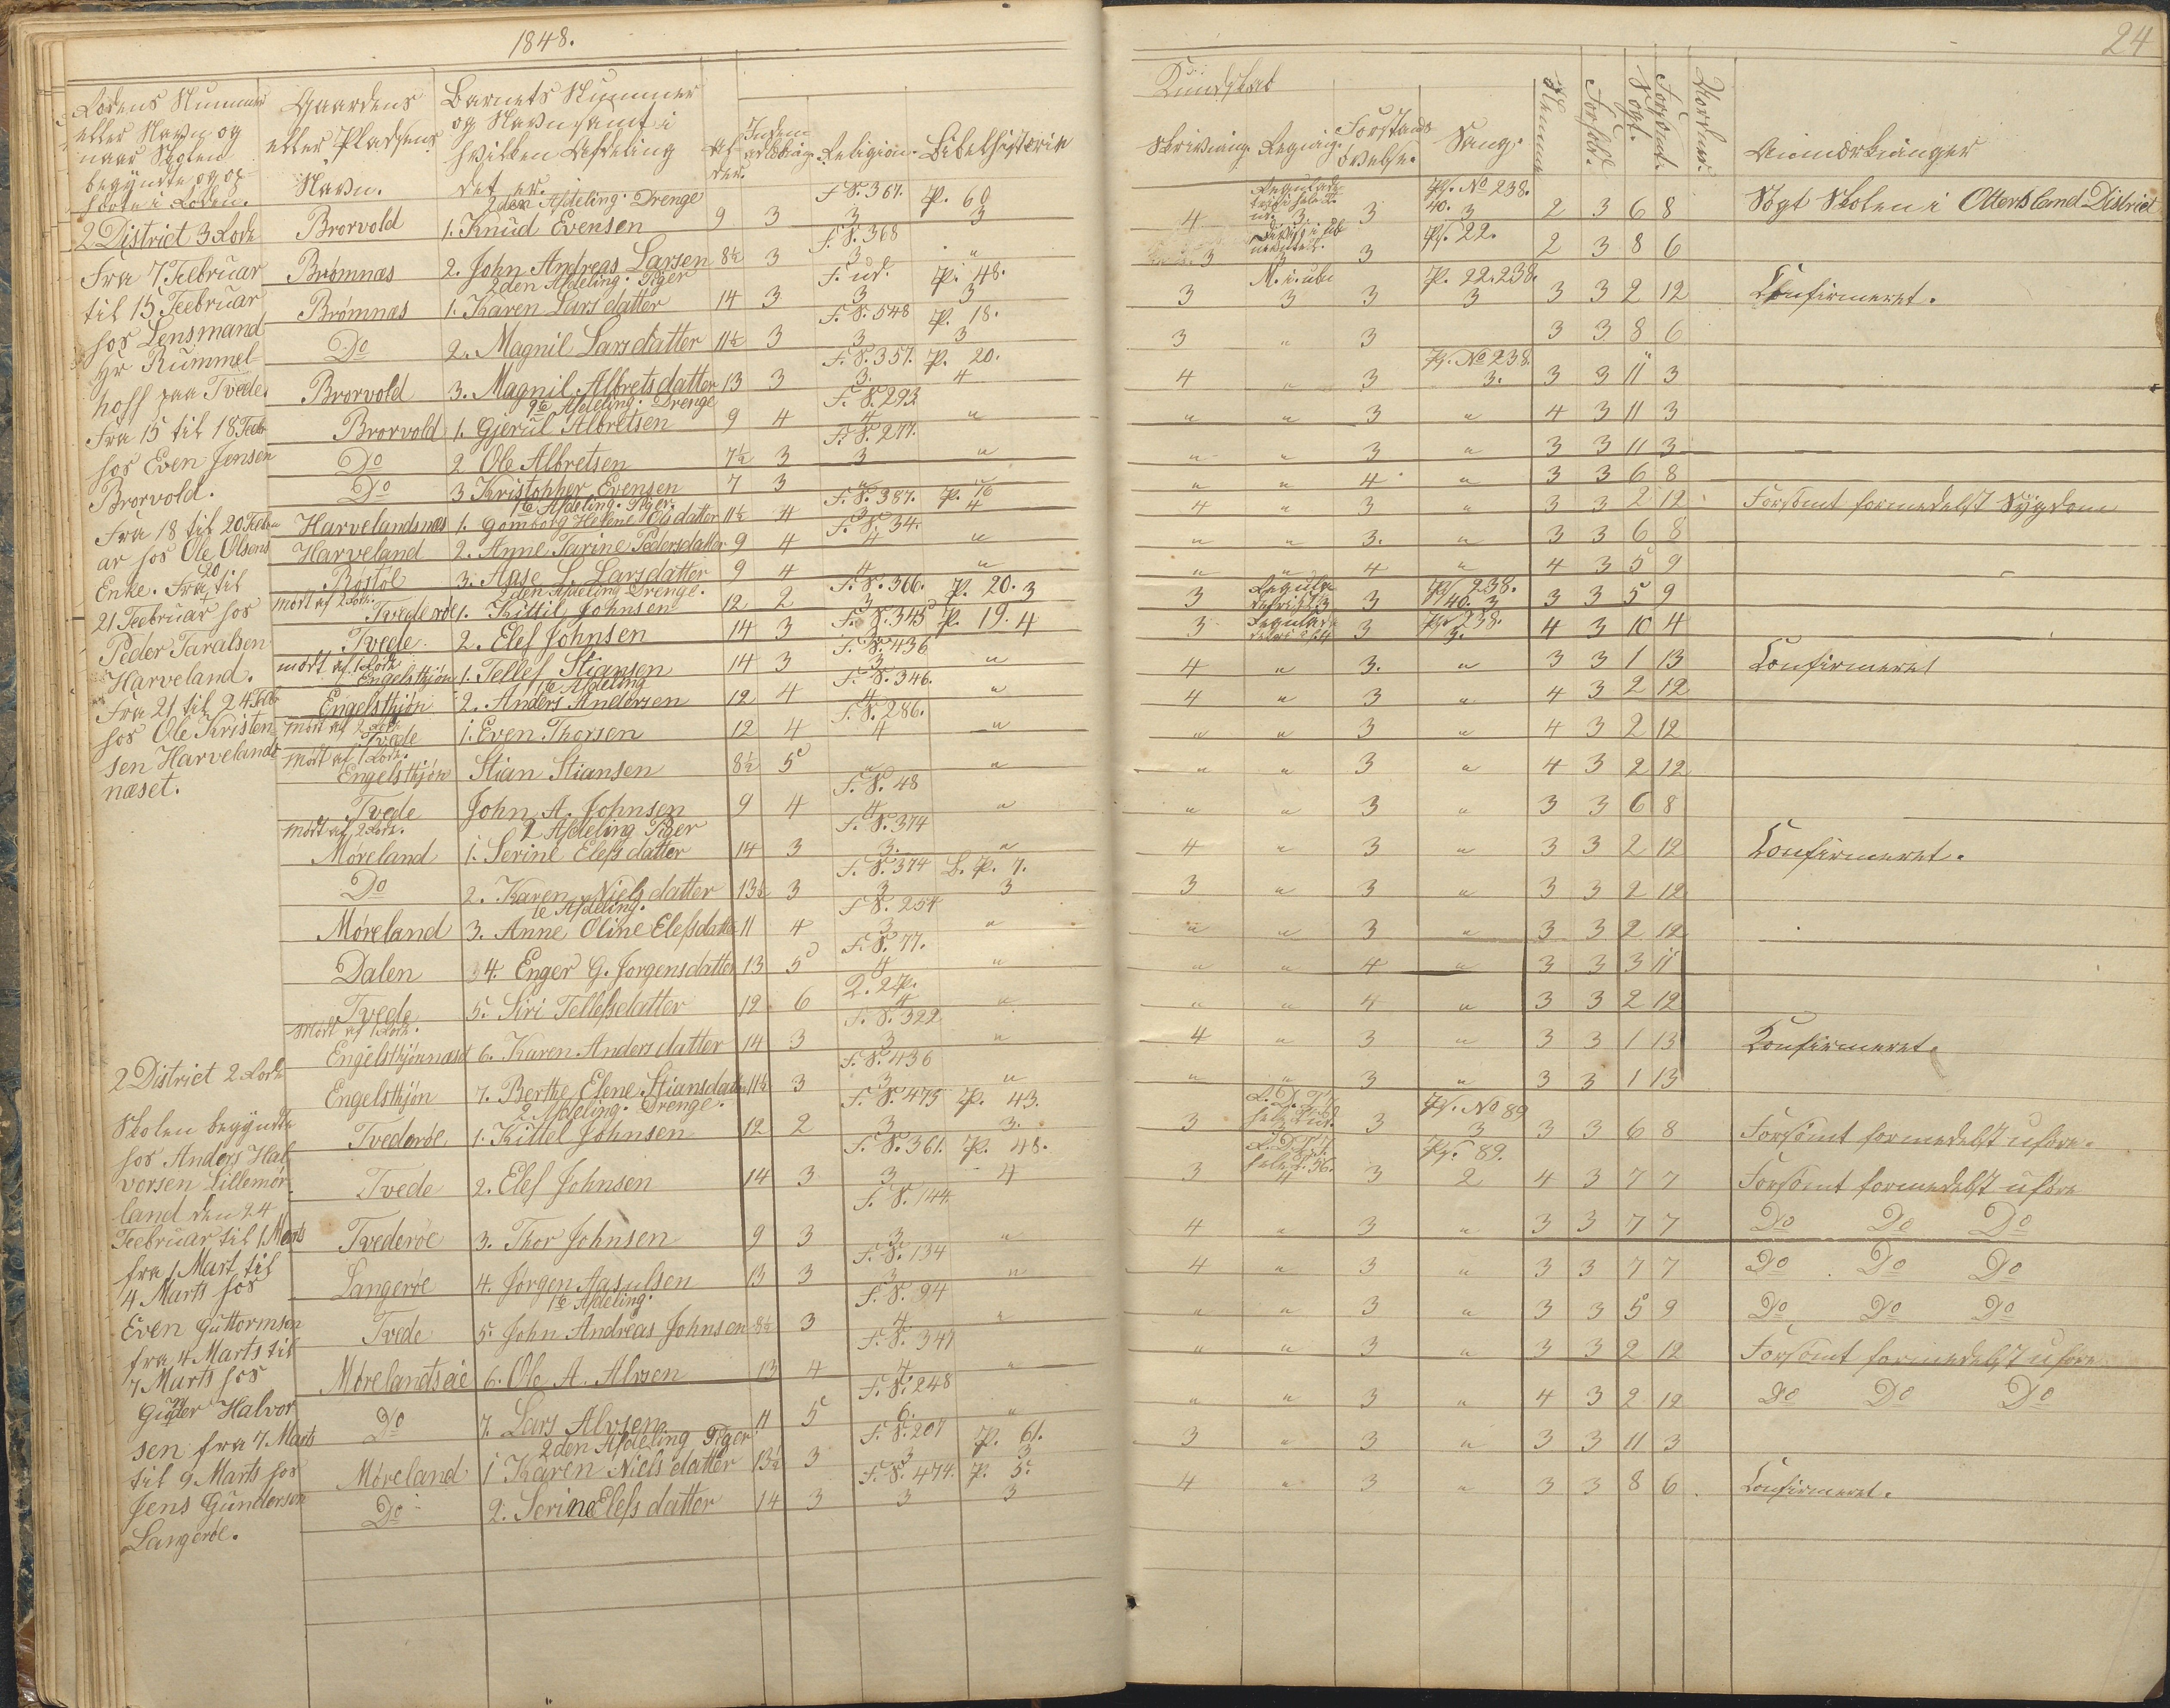 1848.
24
Rodens Nummer eller Navn og naar Skolen begyndte og ophørte i Roden.
Gaardens eller Pladsens Navn.
Barnets Nummer og Navn samt i hvilken Afdeling det er.
Alder.
Religion.
Bibelhistorie
Kundskab
Skrivning.
Regning.
Forstandsøvelse.
Sang.
Nemme
Forhold.
Søgt.
Forsømt.
Anmerkninger
2 District 3 Rode
Fra 7 Februar
til 15 Februar
hos Lensmand
Hr Rummel-
hoff paa Tvede.
Fra 15 til 18 Febr
hos Even Jensen
Brorvold.
Fra 18 til 20 Febru
ar hos Ole Olsens
Enke. Fra 20 til
21 Februar hos
Peder Taralsen
Harveland.
Fra 21 til 24 Feb
hos Ole Kristen
sen Harvelands
næset.
2den Afdeling. Drenge F. S. 367. P. 60
Brorvold 1. Knud Evensen 9 3 3 3 4 3 3 3 2 3 6 8 Søgt Skolen i Ottersland District
Ps. No 238. 40.
F. S. 368 Ps. 22.
Brømnæs 2. John Andreas Larsen 8½ 3 3 " 3 3 3 2 3 8 6
2den Afdeling. Piger F. ud. P. 48. M. i. ube P. 22. 238.
Brømnæs 1. Karen Larsdatter 14 3 3 3 3 3 3 3 3 3 2 12 Confirmeret.
F. S. 548 P. 18.
Do 2. Magnil Larsdatter 11½ 3 3 3 3 " 3 3 3 8 6
F. S. 357. P. 20. Ps. No 238.
Brorvold 3. Magnil Albretsdatter 13 3 3. 4 4 " 3 3. 3 3 11 3
Afdeling. Drenge F. S. 293
Brorvold 1. Gjerul Albretsen 9 4 4 " " " 3 " 4 3 11 3
F. S. 277.
Do 2 Ole Albretsen 7½ 3 3 " " " 3 " 3 3 11 3
Do 3 Kristopher Evensen 7 3 " " " " 4 " 3 3 6 8
1te Afdeling. Piger. F. S. 387. P. 16
Harvelandsnæs 1. Gomborg Helene Olsdatter 11½ 4 3 4 4 " 3 " 3 3 2 12 Forsømt formedelst Sygdom
F. S. 34.
Harveland 2. Anne Tarine Pedersdatter 9 4 4 " " " 3. " 3 3 6 8
Bøstøl 3. Aase L. Larsdatter 9 4 4 " " " 4 " 4 3 5 9
mødt af 2 Rode. 2den Afdeling Drenge. F. S. 366. P. 20. Ps 238. 40.
Tvederøe 1. Kittil Johnsen 12 2 3 3 3 3 3 3 3 3 5 9
F. S. 345 P. 19. Ps 238.
Tvede 2. Elef Johnsen 14 3 3 4 3 4 3 3. 4 3 10 4
mødt af 1 Rode F. S. 436
Engelsthjøn 1. Tellef Stiansen 14 3 3 " 4 " 3. " 3 3 1 13 Confirmeret
1te Afdeling F. S. 346.
Engelsthjøn 2. Anders Andersen 12 4 4 " 4 " 3 " 4 3 2 12
mødt af 2 Rode F. S. 286.
Tvede 1. Even Thorsen 12 4 4 " " " 3 " 4 3 2 12
Mødt af 1 Rode.
Engelsthjøn Stian Stiansen 8½ 5 " " " " 3 " 4 3 2 12
F. S. 48
Tvede John A. Johnsen 9 4 4 " " " 3 " 3 3 6 8
Mødt af 2 Rode. 2 Afdeling Piger F. S. 374
Møreland 1. Serine Elefsdatter 14 3 3. " 4 " 3 " 3 3 2 12 Confirmeret.
F. S. 374 L. P. 7.
Do 2. Karen Nielsdatter 13½ 3 3 3 3 " 3 " 3 3 2 12
1te Afdeling. F. S. 254
Møreland 3. Anne Oline Elefsdatter 11 4 3 " " " 3 " 3 3 2 12
F. S. 77.
Dalen 4. Enger G. Jørgensdatter 13 5 4 " " " 4 " 3 3 3 11
2. 2 P.
Tvede 5. Siri Tellefsdatter 12 6 4 " " " 4 " 3 3 2 12
Mødt af 1 Rode. F. S. 322
Engelsthjønnæset 6. Karen Andersdatter 14 3 3 " 4 " 3 " 3 3 1 13 Confirmeret.
F. S. 436
Engelsthjøn 7. Berthe Elene Stiansdatter 11½ 3 3 " " " 3 " 3 3 1 13
2 District 2 Rode
Skolen begyndte
hos Anders Hal
vorsen Lillemør
land den 24
Februar til 1 Marts
fra 1 Mart til
4 Marts hos
Even Guttormsen
fra 4 Marts til
7 Marts hos
Halvor
sen fra 7 Marts
til 9 Marts hos
Jens Gundersen
Langerøe.
2 Afdeling. Drenge. F. S. 475 P. 43. Ps. No 89
Tvederøe 1. Kittel Johnsen 12 2 3 3. 3 3 3 3 3 6 8 Forsømt formedelst uføre.
F. S. 361. P. 48. Ps. 89.
Tvede 2. Elef Johnsen 14 3 3 4 3 4 3 2 4 3 7 7 Forsømt formedelst uføre
F. S. 144.
Tvederøe 3. Thor Johnsen 9 3 3 " 4 " 3 " 3 3 7 7 Do Do Do
F. S. 134
Langerøe 4. Jørgen Aasulsen 13 3 3 " 4 " 3 " 3 3 7 7 Do Do Do
1te Afdeling. F. S. 94
Tvede 5. John Andreas Johnsen 8½ 3 4 " " " 3 " 3 3 5 9 Do Do Do
F. S. 347
Mørelandseie 6. Ole A. Alvsen 13 4 4 " " " 3 " 3 3 2 12 Forsømt formedelst uføre
F. S. 248
Do 7. Lars Alvsen 11 5 6. " " " 3 " 4 3 2 12 Do Do Do
2den Afdeling Piger F. S. 207 P. 61.
Møreland 1 Karen Nielsdatter 13½ 3 3 3 3 " 3 " 3 3 11 3
F. S. 474. P. 5.
Do 2. Serine Elefsdatter 14 3 3 3 4 " 3 " 3 3 8 6 Confirmeret.